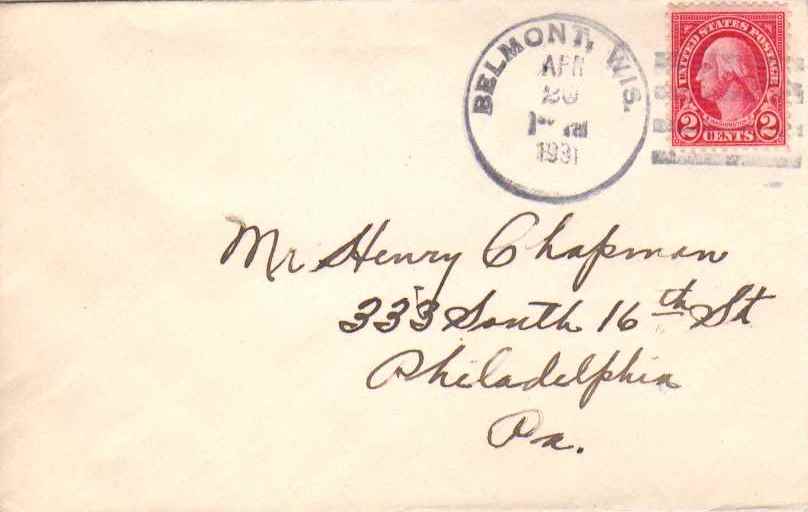 BELMONT, WIS.
APR
30
PM
1931
UNITED STATES POSTAGE
2 CENTS 2
Mr Henry Chapman
333 South 16th St
Philadelphia
Pa.